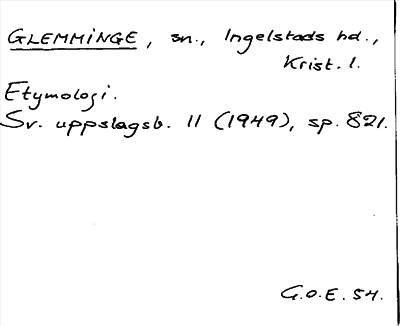 GLEMMINGE, sn., Ingelstads hd.,
Krist. l.
Etymologi.
Sv. uppslagsb. 11 (1949), sp. 821.
G.O.E. 54.